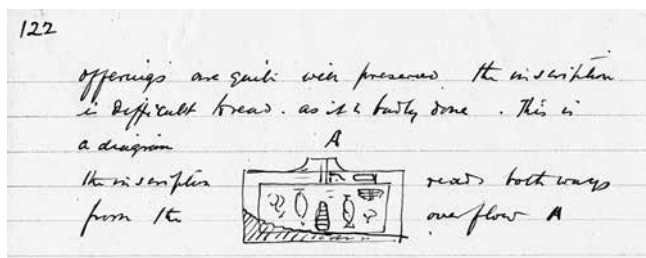 122
offerings are quite well preserved the inscription
is difficult to read. as it is badly done. This is
a diagram
A
the inscription reads both ways
from the overflow A